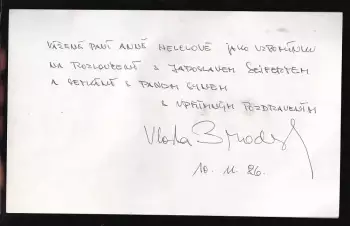 VÁŽENÉ PANÍ ANNĚ HELELOVÉ JAKO VZPOMÍNKU
NA ROZLOUČENÍ S JAROSLAVEM SEIFERTEM
A SETKÁNÍ S PANEM SYNEM
S UPŘÍMNÝM POZDRAVENÍM
Vlasta Brodsk
10. 11. 86.